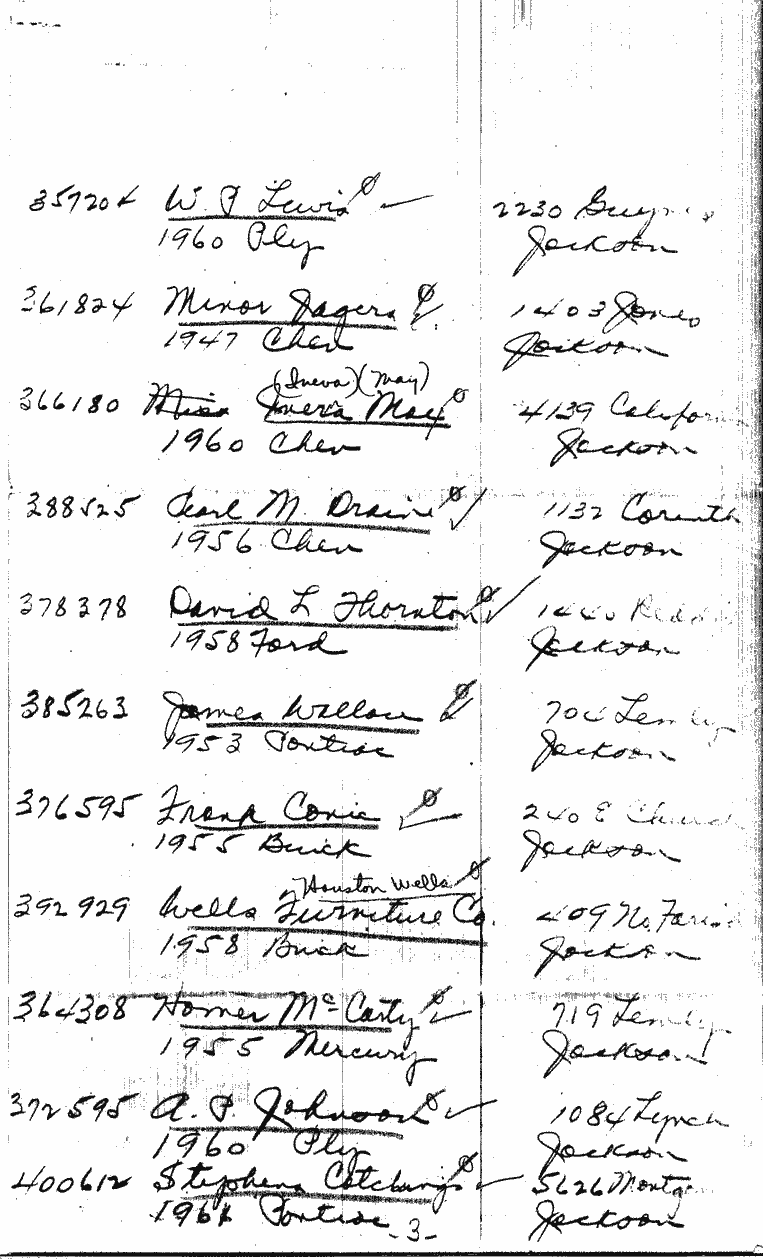 357204 W. P Lewis 2230
1960 Ply Jackson
361824 Minor Jagers 1403 Jones
1947 Chev Jackson
(Ineva) (May)
366180 Miss Inera May 4139
1960 Chev Jackson
388525 Pearl M. Draine 1132 Corinth
1956 Chev Jackson
378378 David L Thornton 1440
1958 Ford Jackson
385263 James 704
1953 Pontiac Jackson
376595 Frank Conic 240 E Church
1955 Buick Jackson
Houston Wells
392929 Wells Furniture Co. 409 No. Faris
1958 Buick Jackson
364308 Homer McCarty 719
1955 Mercury Jackson
372595 A. P. Johnson 1084 Lynch
1960 Ply Jackson
400612 Stephens Catchings 5626 Montg
1961 Pontiac Jackson
-3-